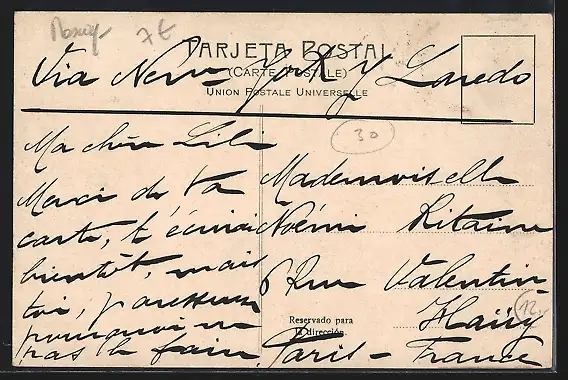 7 €
TARJETA POSTAL
(CARTE POSTALE)
UNION POSTALE UNIVERSELLE
Via New York y Laredo
30
Ma chère Lili
Merci de ta
carte, t'écrirai
bientôt, mais
toi, paresseuse
pourquoi ne
pas le faire.
Mademoiselle
Noémi Ritaine
6 Rue Valentin
Haüy
12.
Reservado para
la dirección.
Paris - France